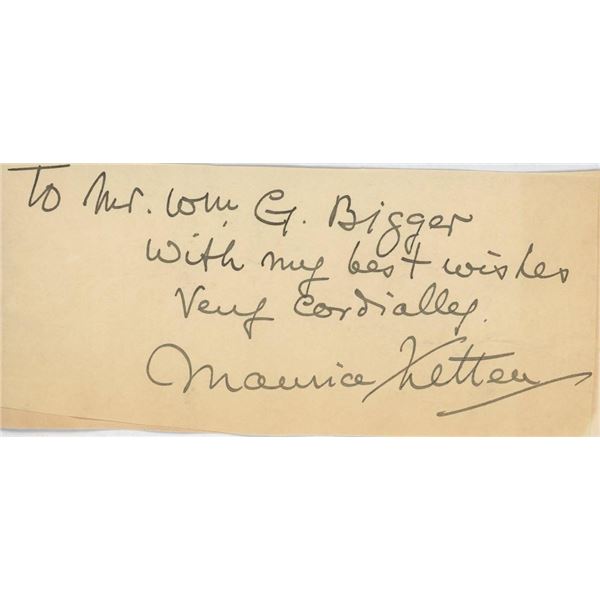 To Mr. Wm. G. Bigger
With my best wishes
Very cordially.
Maurice Ketten